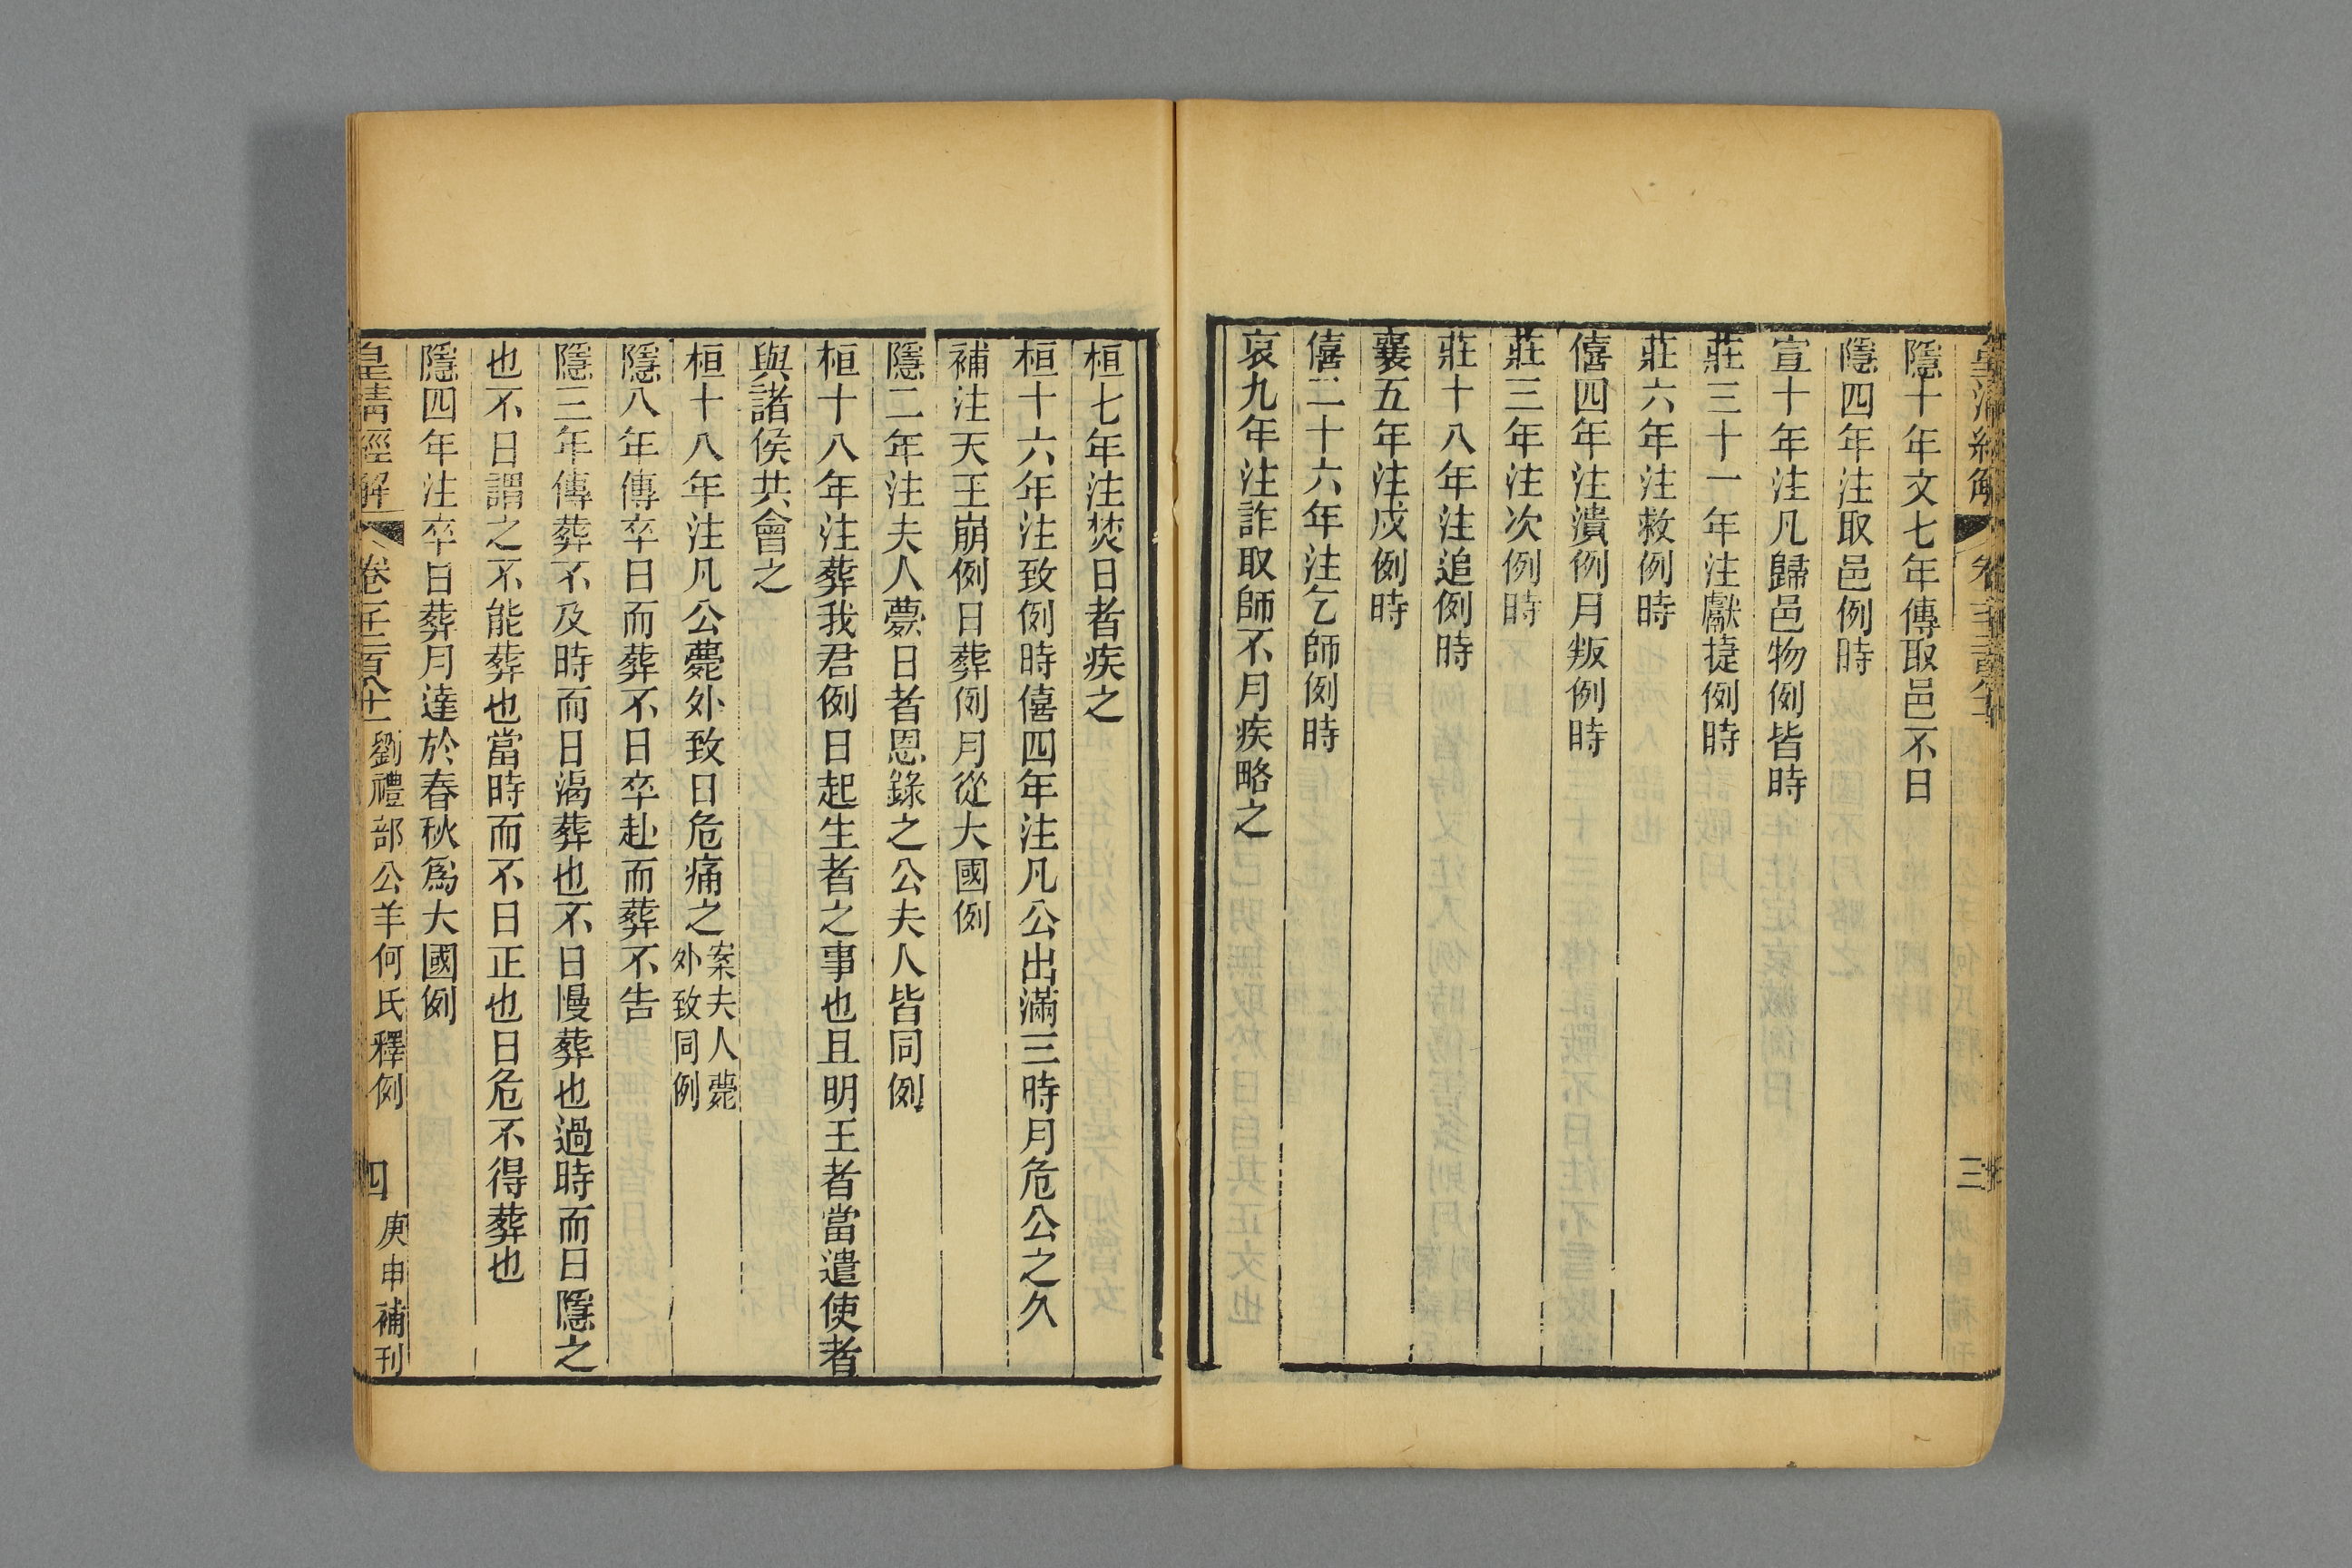 皇清經解
三
隱十年文七年傳取邑不日
隱四年注取邑例時
宣十年注凡歸邑物例皆時
莊三十一年注獻捷例時
莊六年注救例時
僖四年注潰例月叛例時
莊三年注次例時
莊十八年注追例時
襄五年注戍例時
僖二十六年注乞師例時
哀九年注詐取師不月疾略之
桓七年注焚日者疾之
桓十六年注致例時僖四年注凡公出滿三時月危公之久
補注天王崩例日葬例月從大國例
隱二年注夫人薨日者恩錄之公夫人皆同例
桓十八年注葬我君例日起生者之事也且明王者當遣使者
與諸侯共會之
桓十八年注凡公薨外致日危痛之案夫人薨
外致同例
隱八年傳卒日而葬不日卒赴而葬不告
隱三年傳葬不及時而日渴葬也不日慢葬也過時而日隱之
也不日謂之不能葬也當時而不日正也日危不得葬也
隱四年注卒日葬月達於春秋爲大國例
皇清經解 卷 劉禮部公羊何氏釋例 四 庚申補刊